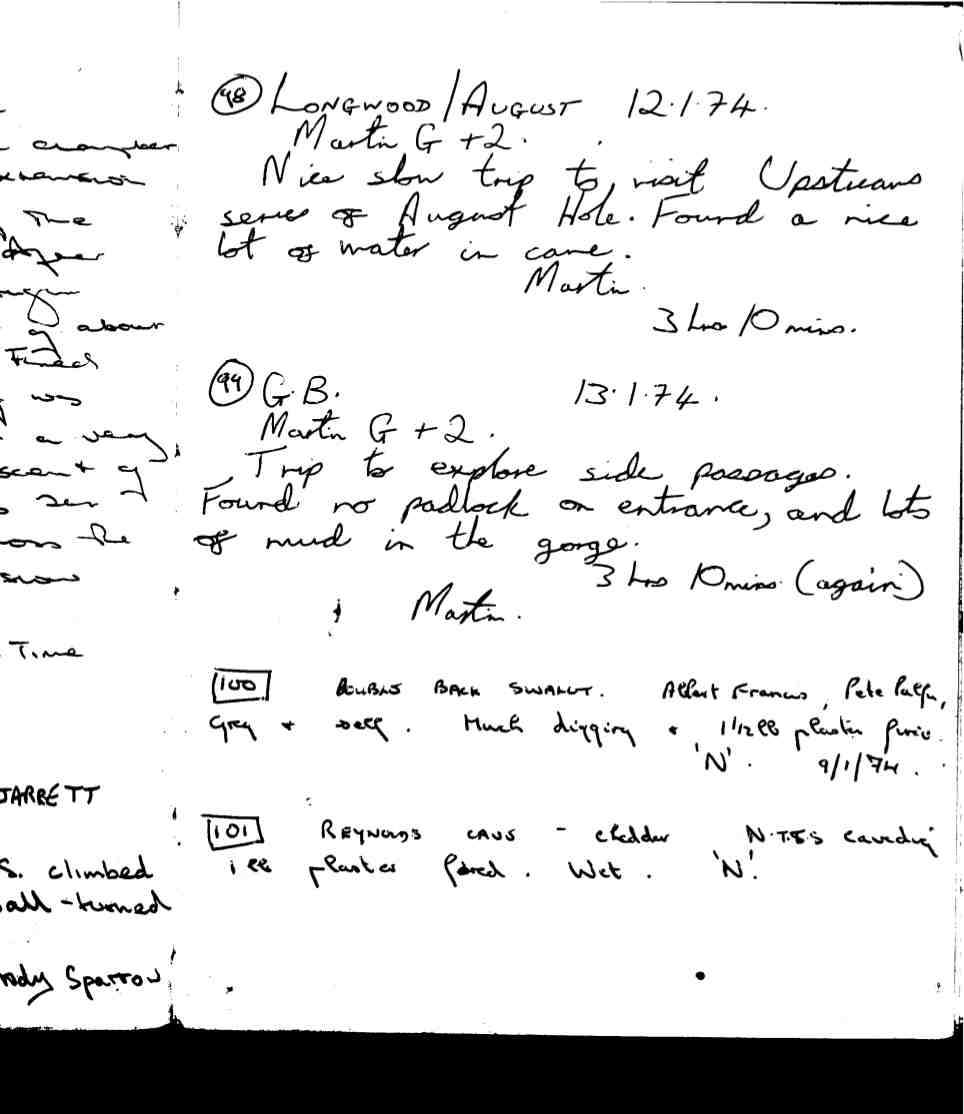 chamber
The
about
was
a very
the
Time
JARRETT
S. climbed
all - turned
Sparrow
98 LONGWOOD / AUGUST 12.1.74.
Martin G + 2.
Nice slow trip to visit Upstream
series of August Hole. Found a nice
lot of water in cave.
Martin.
3 hrs 10 mins.
99 G.B. 13.1.74.
Martin G + 2.
Trip to explore side passages.
Found no padlock on entrance, and lots
of mud in the gorge.
3 hrs 10 mins. (again)
Martin.
100 BACK SWALLET. Albert Francis, Pete
+ self. Much digging + 1 1/2 lb plaster
'N'. 9/1/74.
101 REYNOLDS CAVE - cheddar
1 lb plaster fired. Wet. 'N'.